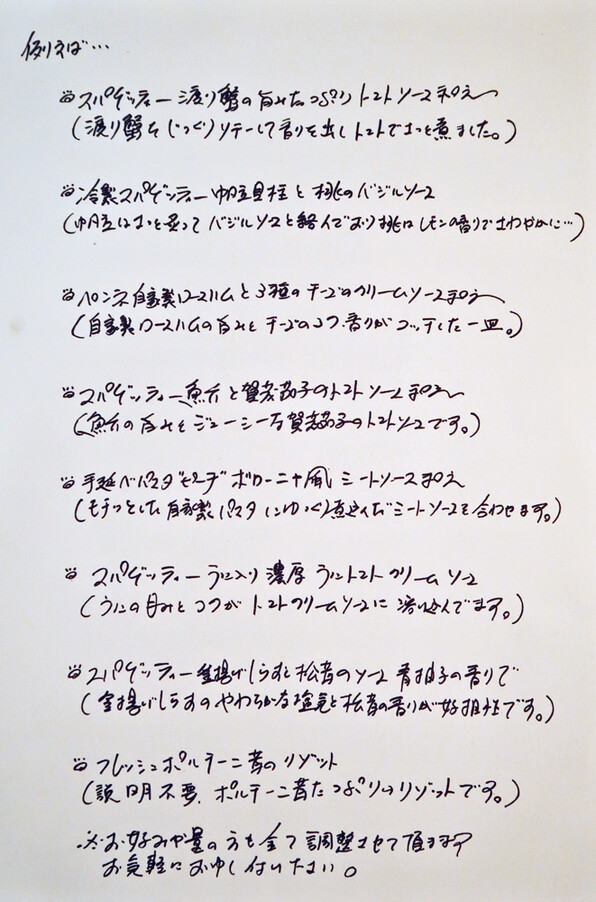 例えば…
スパゲッティー 渡り蟹の旨みたっぷり トマトソース和え
(渡り蟹をじっくりソテーして香りを出しトマトでさっと煮ました。)
冷製スパゲッティー 帆立貝柱と桃のバジルソース
(帆立はさっと炙って バジルソースと絡んでおり桃はレモンの香りでさわやかに…)
ペンネ自家製ロースハムと3種のチーズのクリームソース和え
(自家製ロースハムの旨みとチーズのコク、香りがマッチした一皿。)
スパゲッティー 魚介と賀茂茄子のトマトソース和え
(魚介の旨みとジューシーな賀茂茄子のトマトソースです。)
手延べパスタ ボローニャ風 ミートソース和え
(モチっとした自家製パスタにゆっくり煮込んだミートソースを合わせます。)
スパゲッティー うに入り 濃厚 うにトマト クリームソース
(うにの甘みとコクがトマトクリームソースに溶け込んでます。)
スパゲッティー 釜揚げしらすと松茸のソース 青柚子の香りで
(釜揚げしらすのやわらかな塩気と松茸の香りが好相性です。)
フレッシュポルチーニ茸のリゾット
(説明不要、ポルチーニ茸たっぷりのリゾットです。)
※お好みや量の方も全て調整させて頂きます
お気軽にお申し付け下さい。